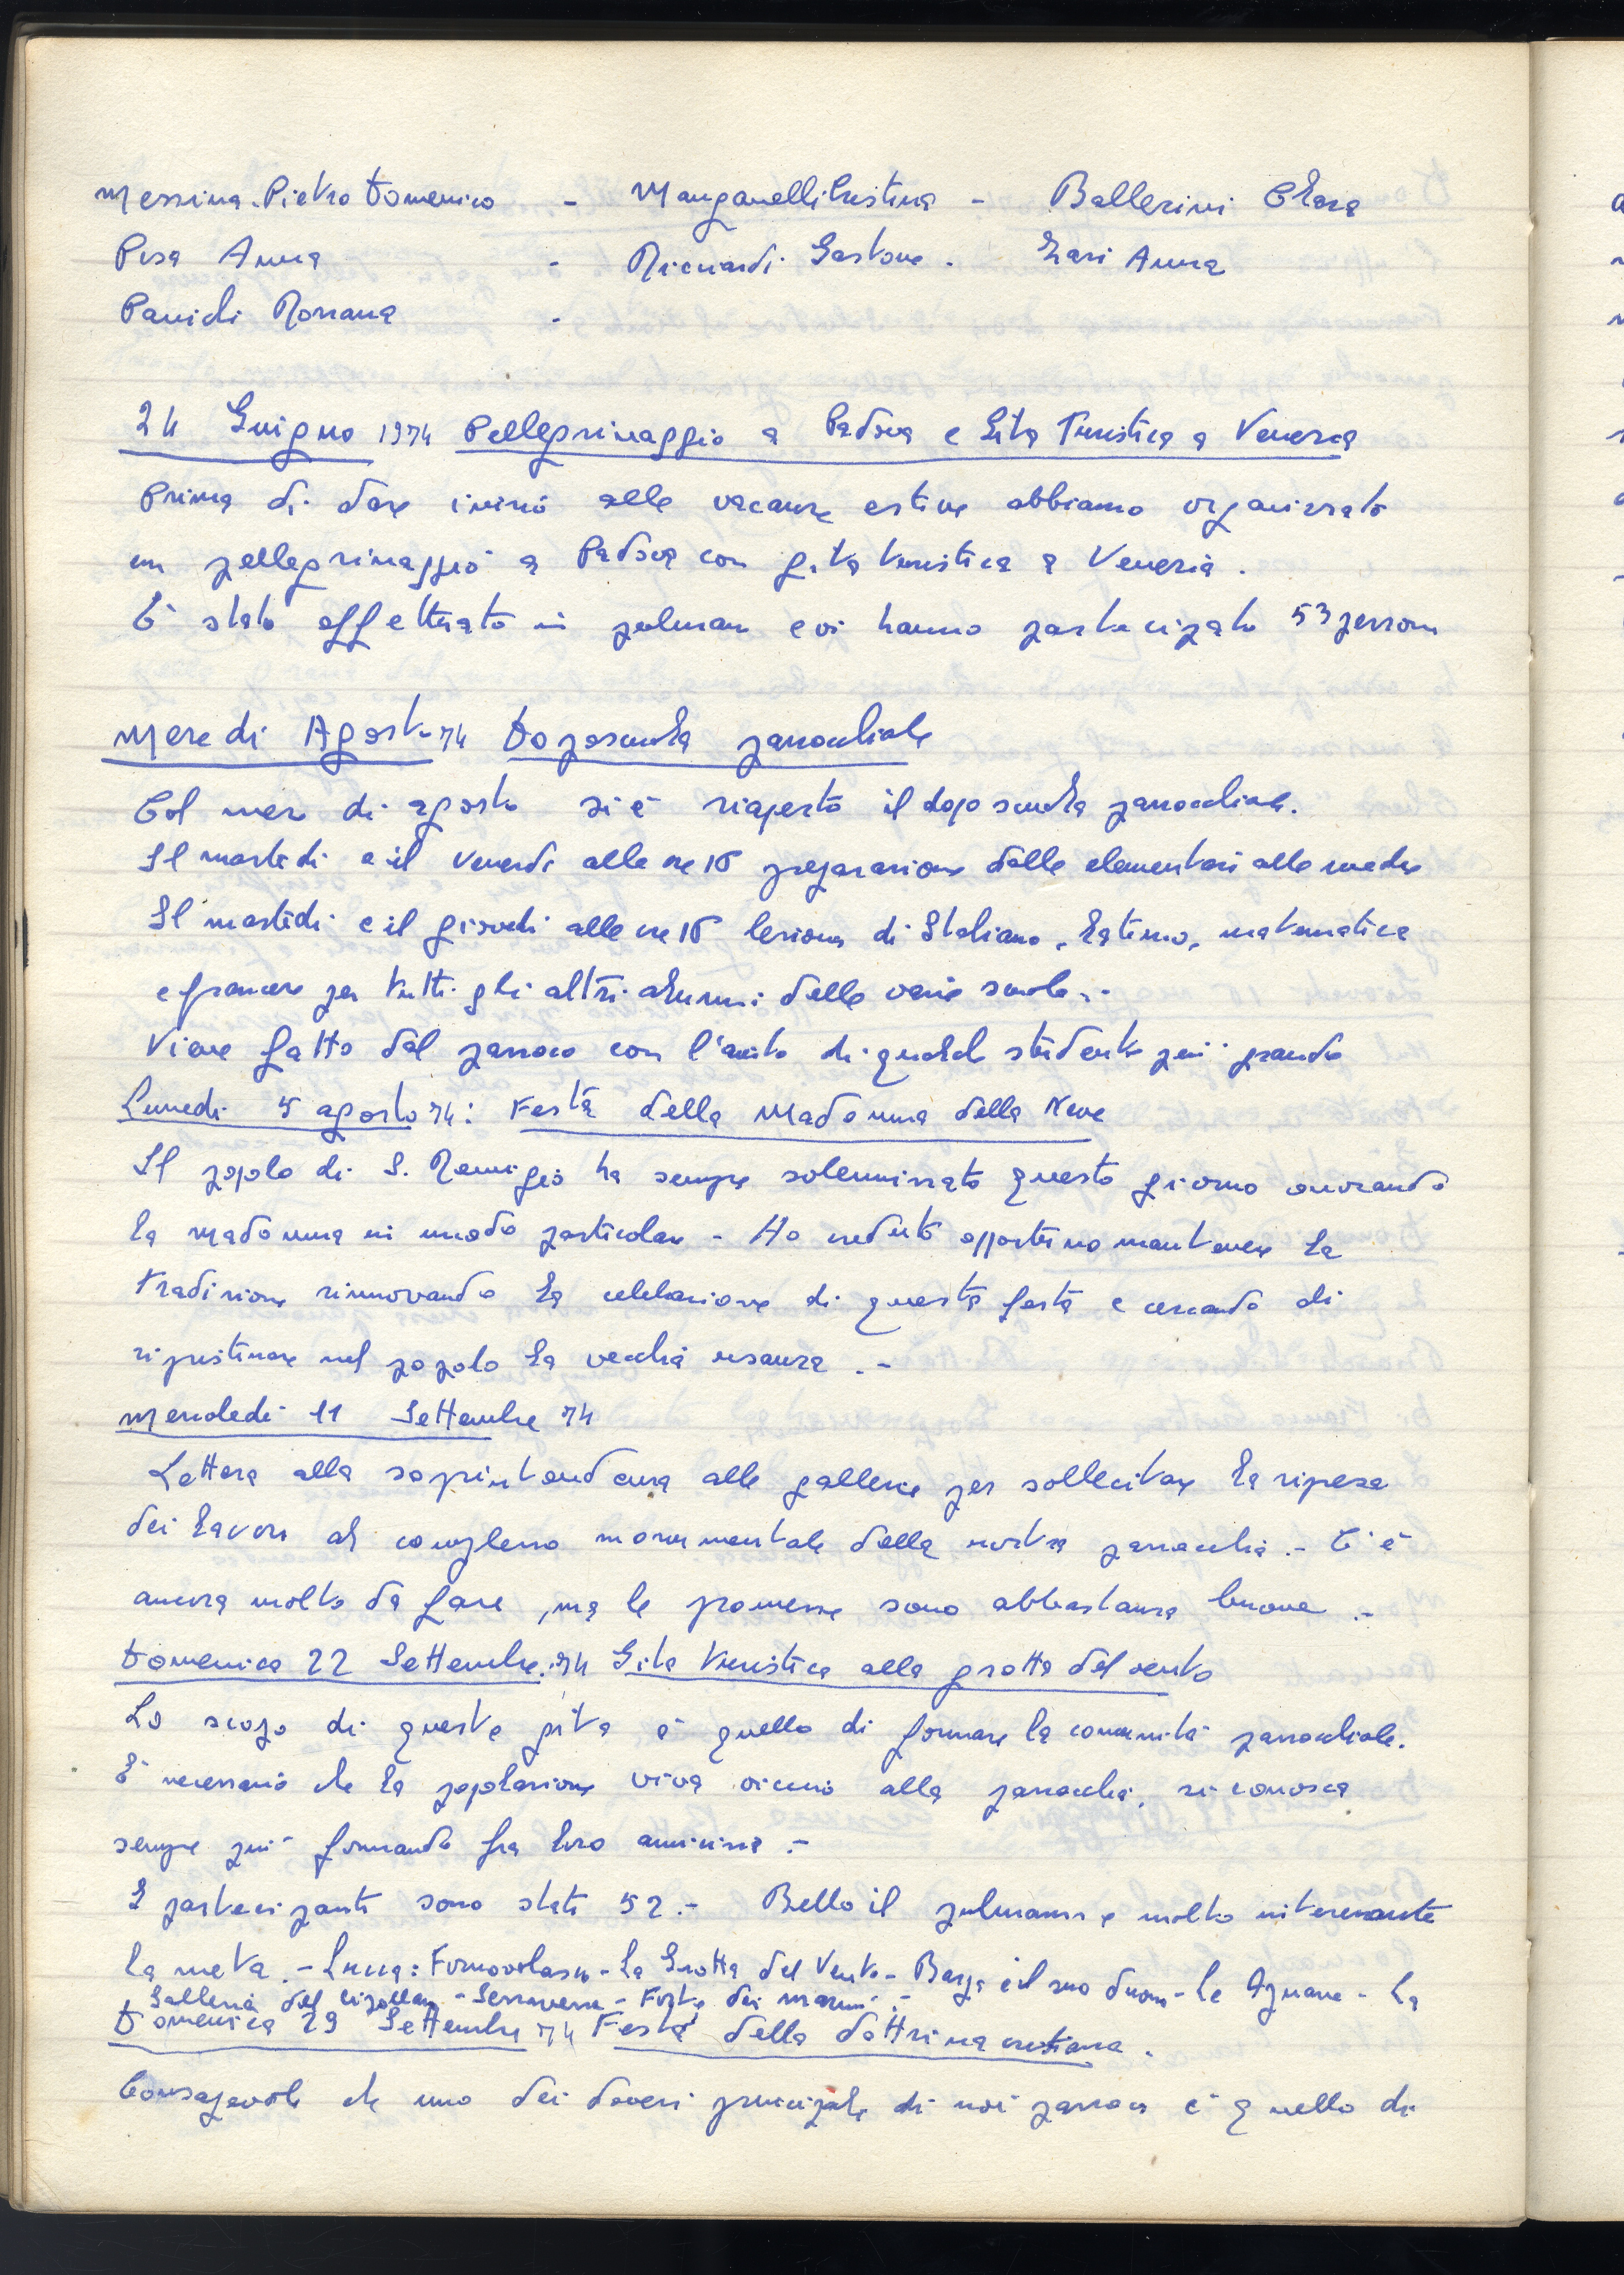 Messina Pietro Domenico - Manganelli Cristina - Ballerini Clara
Pisa Anna - Ricciardi Gastone - Lari Anna
Panichi Rossana -
24 Giugno 1974 Pellegrinaggio a Padova e Gita Turistica a Venezia
Prima di dare inizio alle vacanze estive abbiamo organizzato
un pellegrinaggio a Padova con gita turistica a Venezia.
È stato effettuato in pulman e vi hanno partecipato 53 persone
Mese di Agosto 74 Doposcuola parrocchiale
Col mese di agosto si è riaperto il dopo scuola parrocchiale.
Il martedi e il Venerdi alle ore 16 preparazione dalle elementari alle medie
Il martedi e il giovedi alle ore 16 lezioni di Italiano, Latino, matematica
e francese per tutti gli altri alunni delle varie scuole.-
Viene fatto dal parroco con l'aiuto di qualche studente più grande
Lunedi 5 agosto 74: Festa della Madonna della Neve
Il popolo di S. Remigio ha sempre solennizzato questo giorno onorando
la Madonna in modo particolare - Ho creduto opportuno mantenere la
tradizione rinnovando la celebrazione di questa festa e cercando di
ripristinare nel popolo la vecchia usanza.-
Mercoledi 11 Settembre 74
Lettera alla soprintendenza alle gallerie per sollecitare la ripresa
dei lavori al complesso monumentale della nostra parrocchia.- C'è
ancora molto da fare, ma le promesse sono abbastanza buone.-
Domenica 22 Settembre.74 Gita turistica alla grotta del vento
Lo scopo di queste gite è quello di formare la comunità parrocchiale.
È necessario che la popolazione viva vicino alla parrocchia, si conosca
sempre più formando fra loro amicizia.-
I partecipanti sono stati 52.- Bello il pulmann e molto interessante
la meta.- Lucca: Fornovolasco - La Grotta del Vento - Barga e il suo duomo - Le Apuane - La
Galleria del Cipollaio - Serravezza - Forte dei Marmi.-
Domenica 29 Settembre 74 Festa della dottrina cristiana.
Consapevole che uno dei doveri principale di noi parroci è quello di